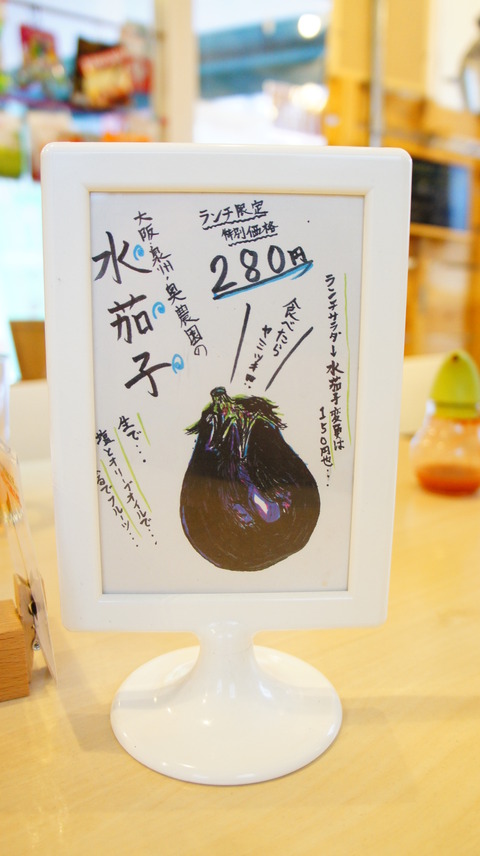 ランチ限定
特別価格
280円
ランチサラダ→水茄子変更は
150円也…
食べたら
ヤミツキ!!
大阪・泉州・奥農園の
水茄子
生で…
塩とオリーブオイルで…
るでフルーツ…